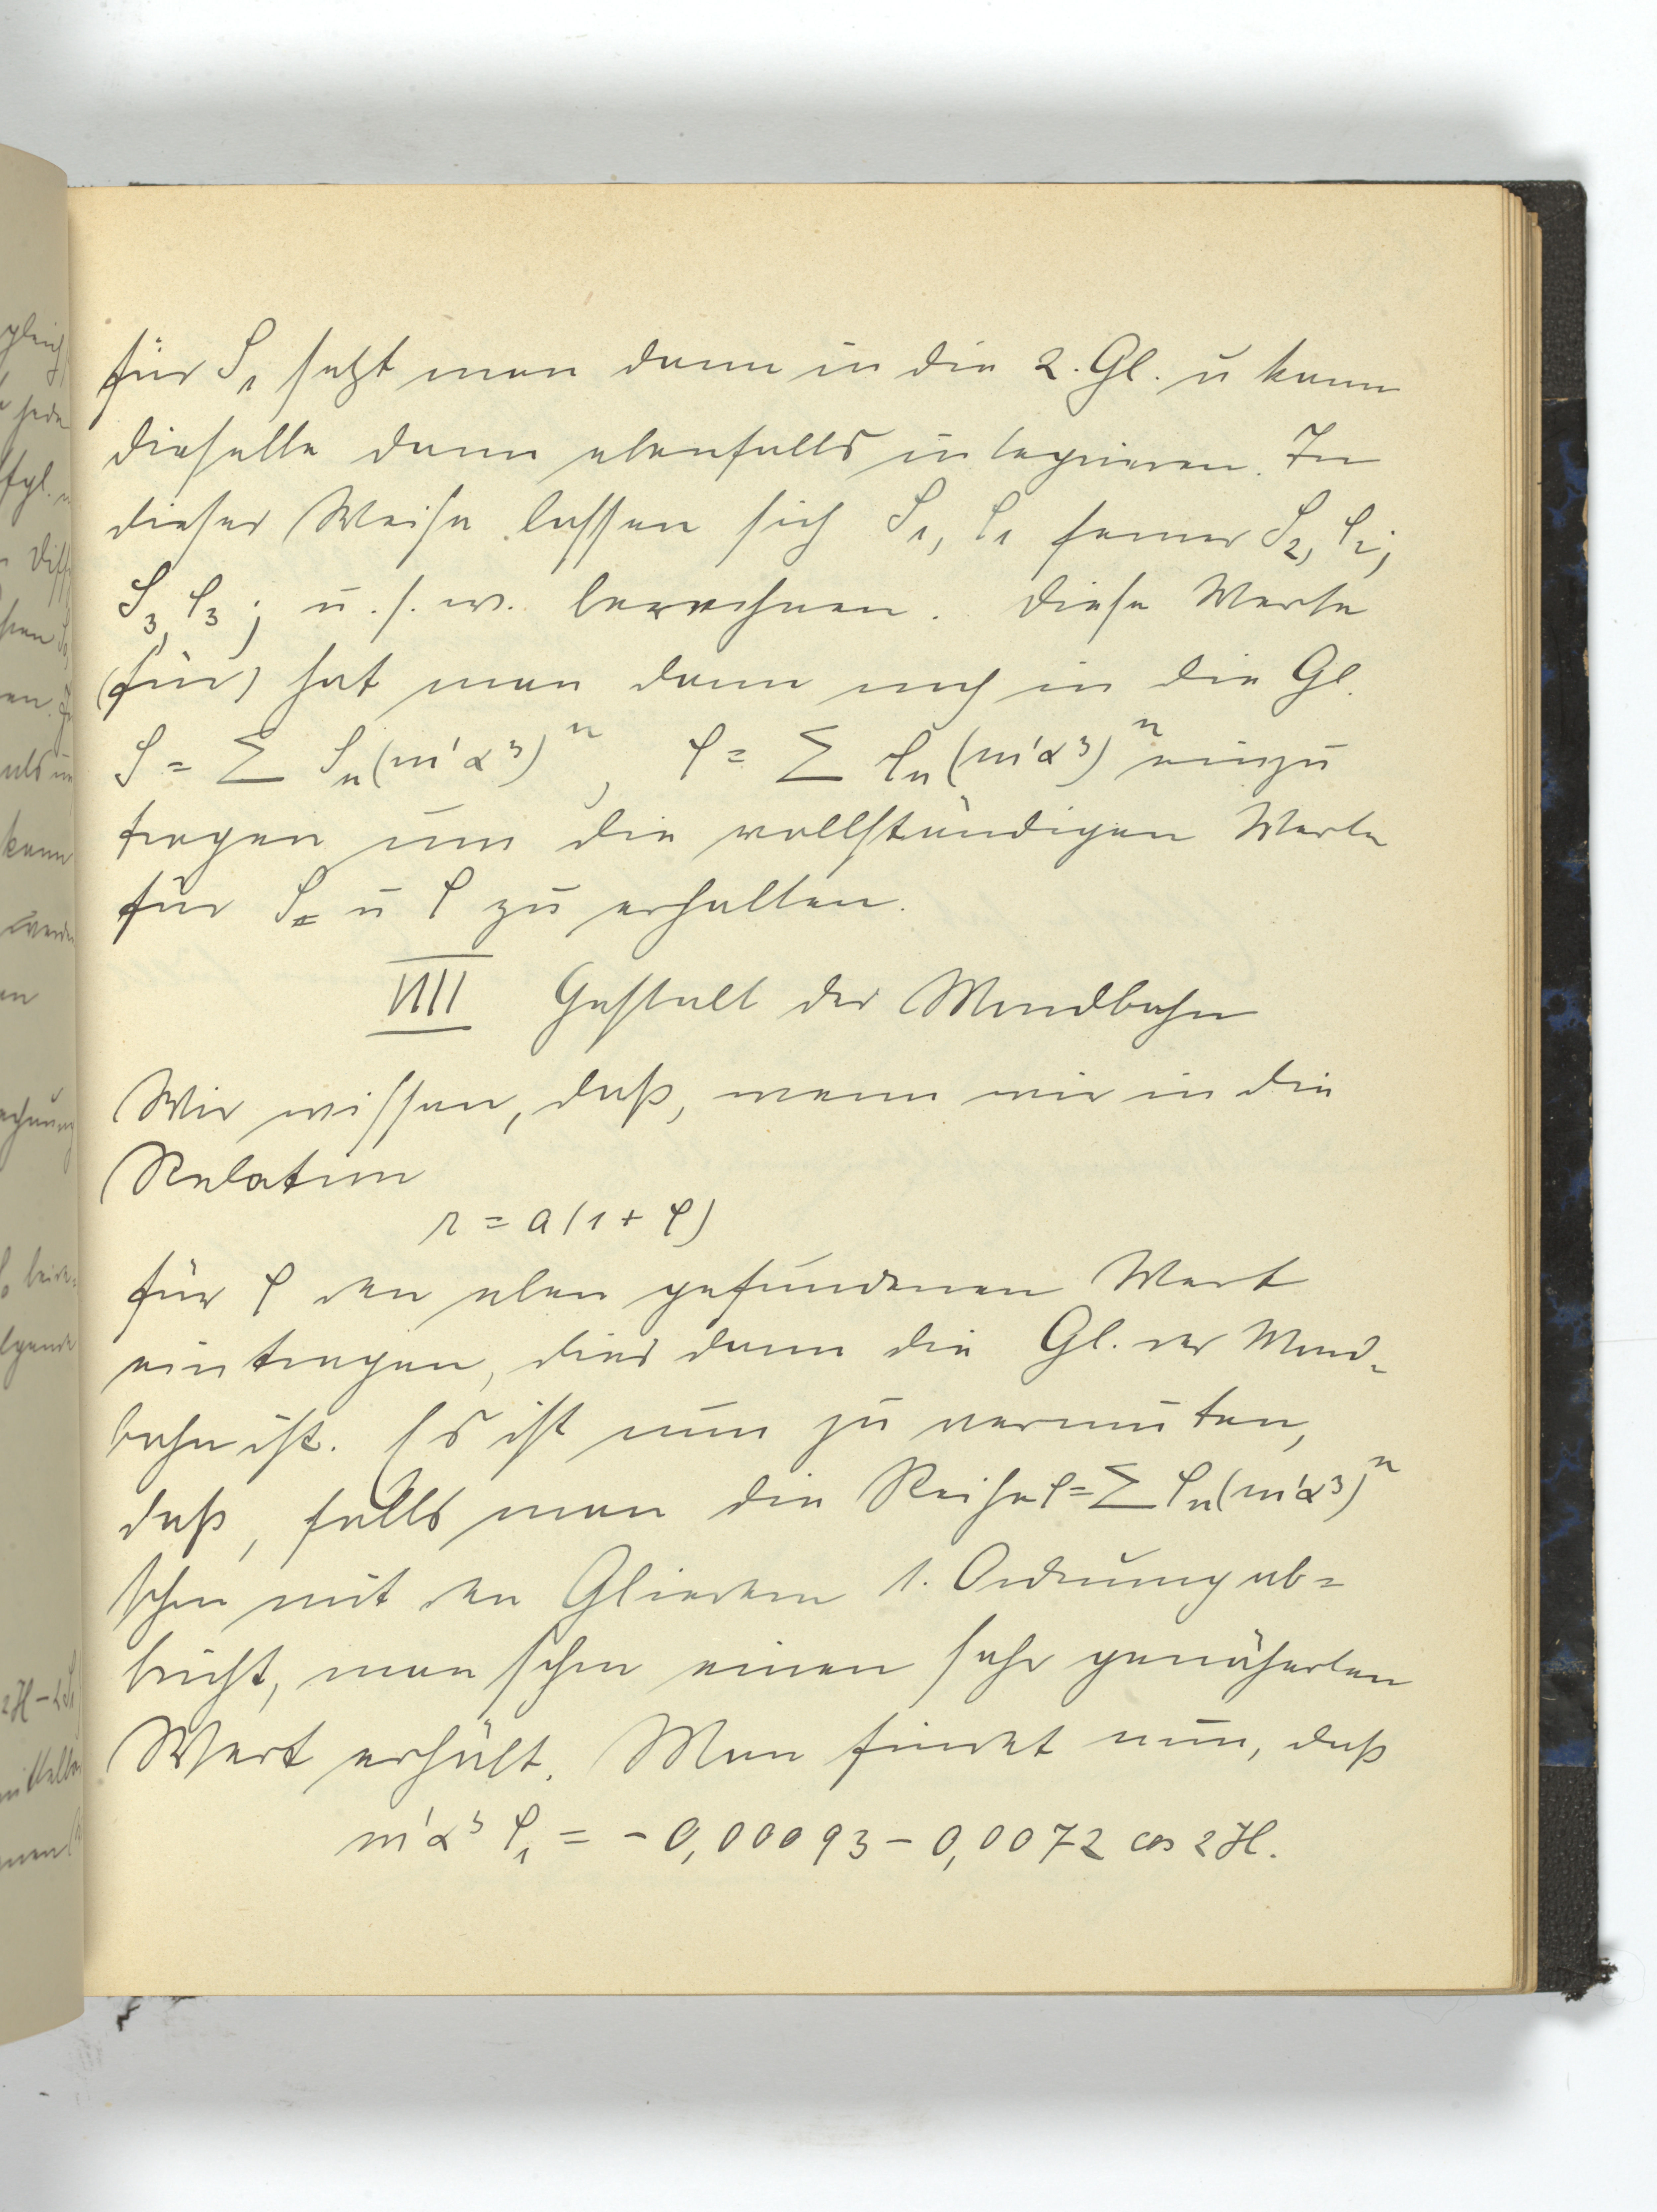 für S₁ setzt man dann in die 2. Gl. u kann
dieselbe dann ebenfalls integrieren. In
dieser Weise lassen sich S₁, ρ₁ ferner S₂, ρ₂;
S₃, ρ₃; u.s.w. berechnen. Diese Werte
(für) hat man dann noch in die Gl.
S = Σ Sₙ(m'α³)ⁿ, ρ = Σ ρₙ(m'α³)ⁿ einzu
tragen um die vollständigen Werte
für S u ρ zu erhalten.
VIII Gestalt der Mondbahn
Wir wissen, daß, wenn wir in die
Relation
r = a(1 + ρ)
für ρ den eben gefundenen Wert
eintragen, dies dann die Gl. der Mond-
bahn ist. Es ist nun zu vermuten,
daß, falls man die Reihe ρ = Σ ρₙ(m'α³)ⁿ
schon mit den Gliedern 1. Ordnung ab=
bricht, man schon einen sehr genäherten
Wert erhält. Man findet nun, daß
m'α³ ρ₁ = - 0,00093 - 0,0072 cos 2H.
gleich
jede
Diff
kann
2H - 2S₁